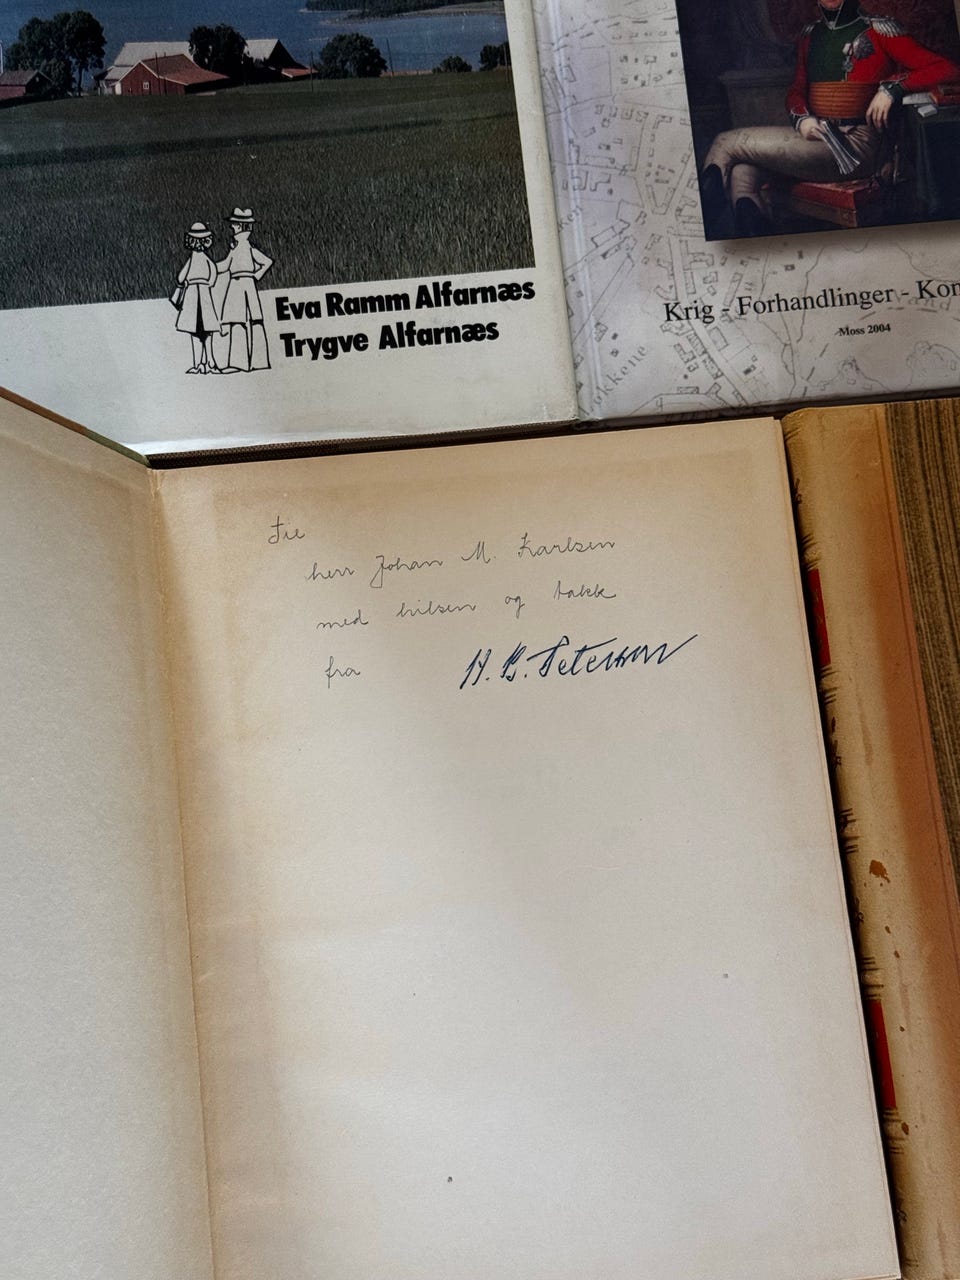 Eva Ramm Alfarnæs
Trygve Alfarnæs
Krig - Forhandlinger - Kon
Moss 2004
Til
herr Johan M. Karlsen
med hilsen og takk
fra H. B. Petersen